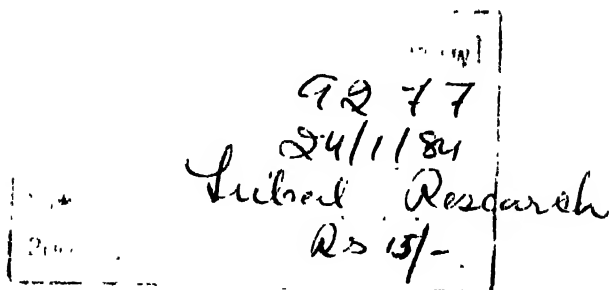 9277
24/1/84
Tribal Research
Rs 15/-